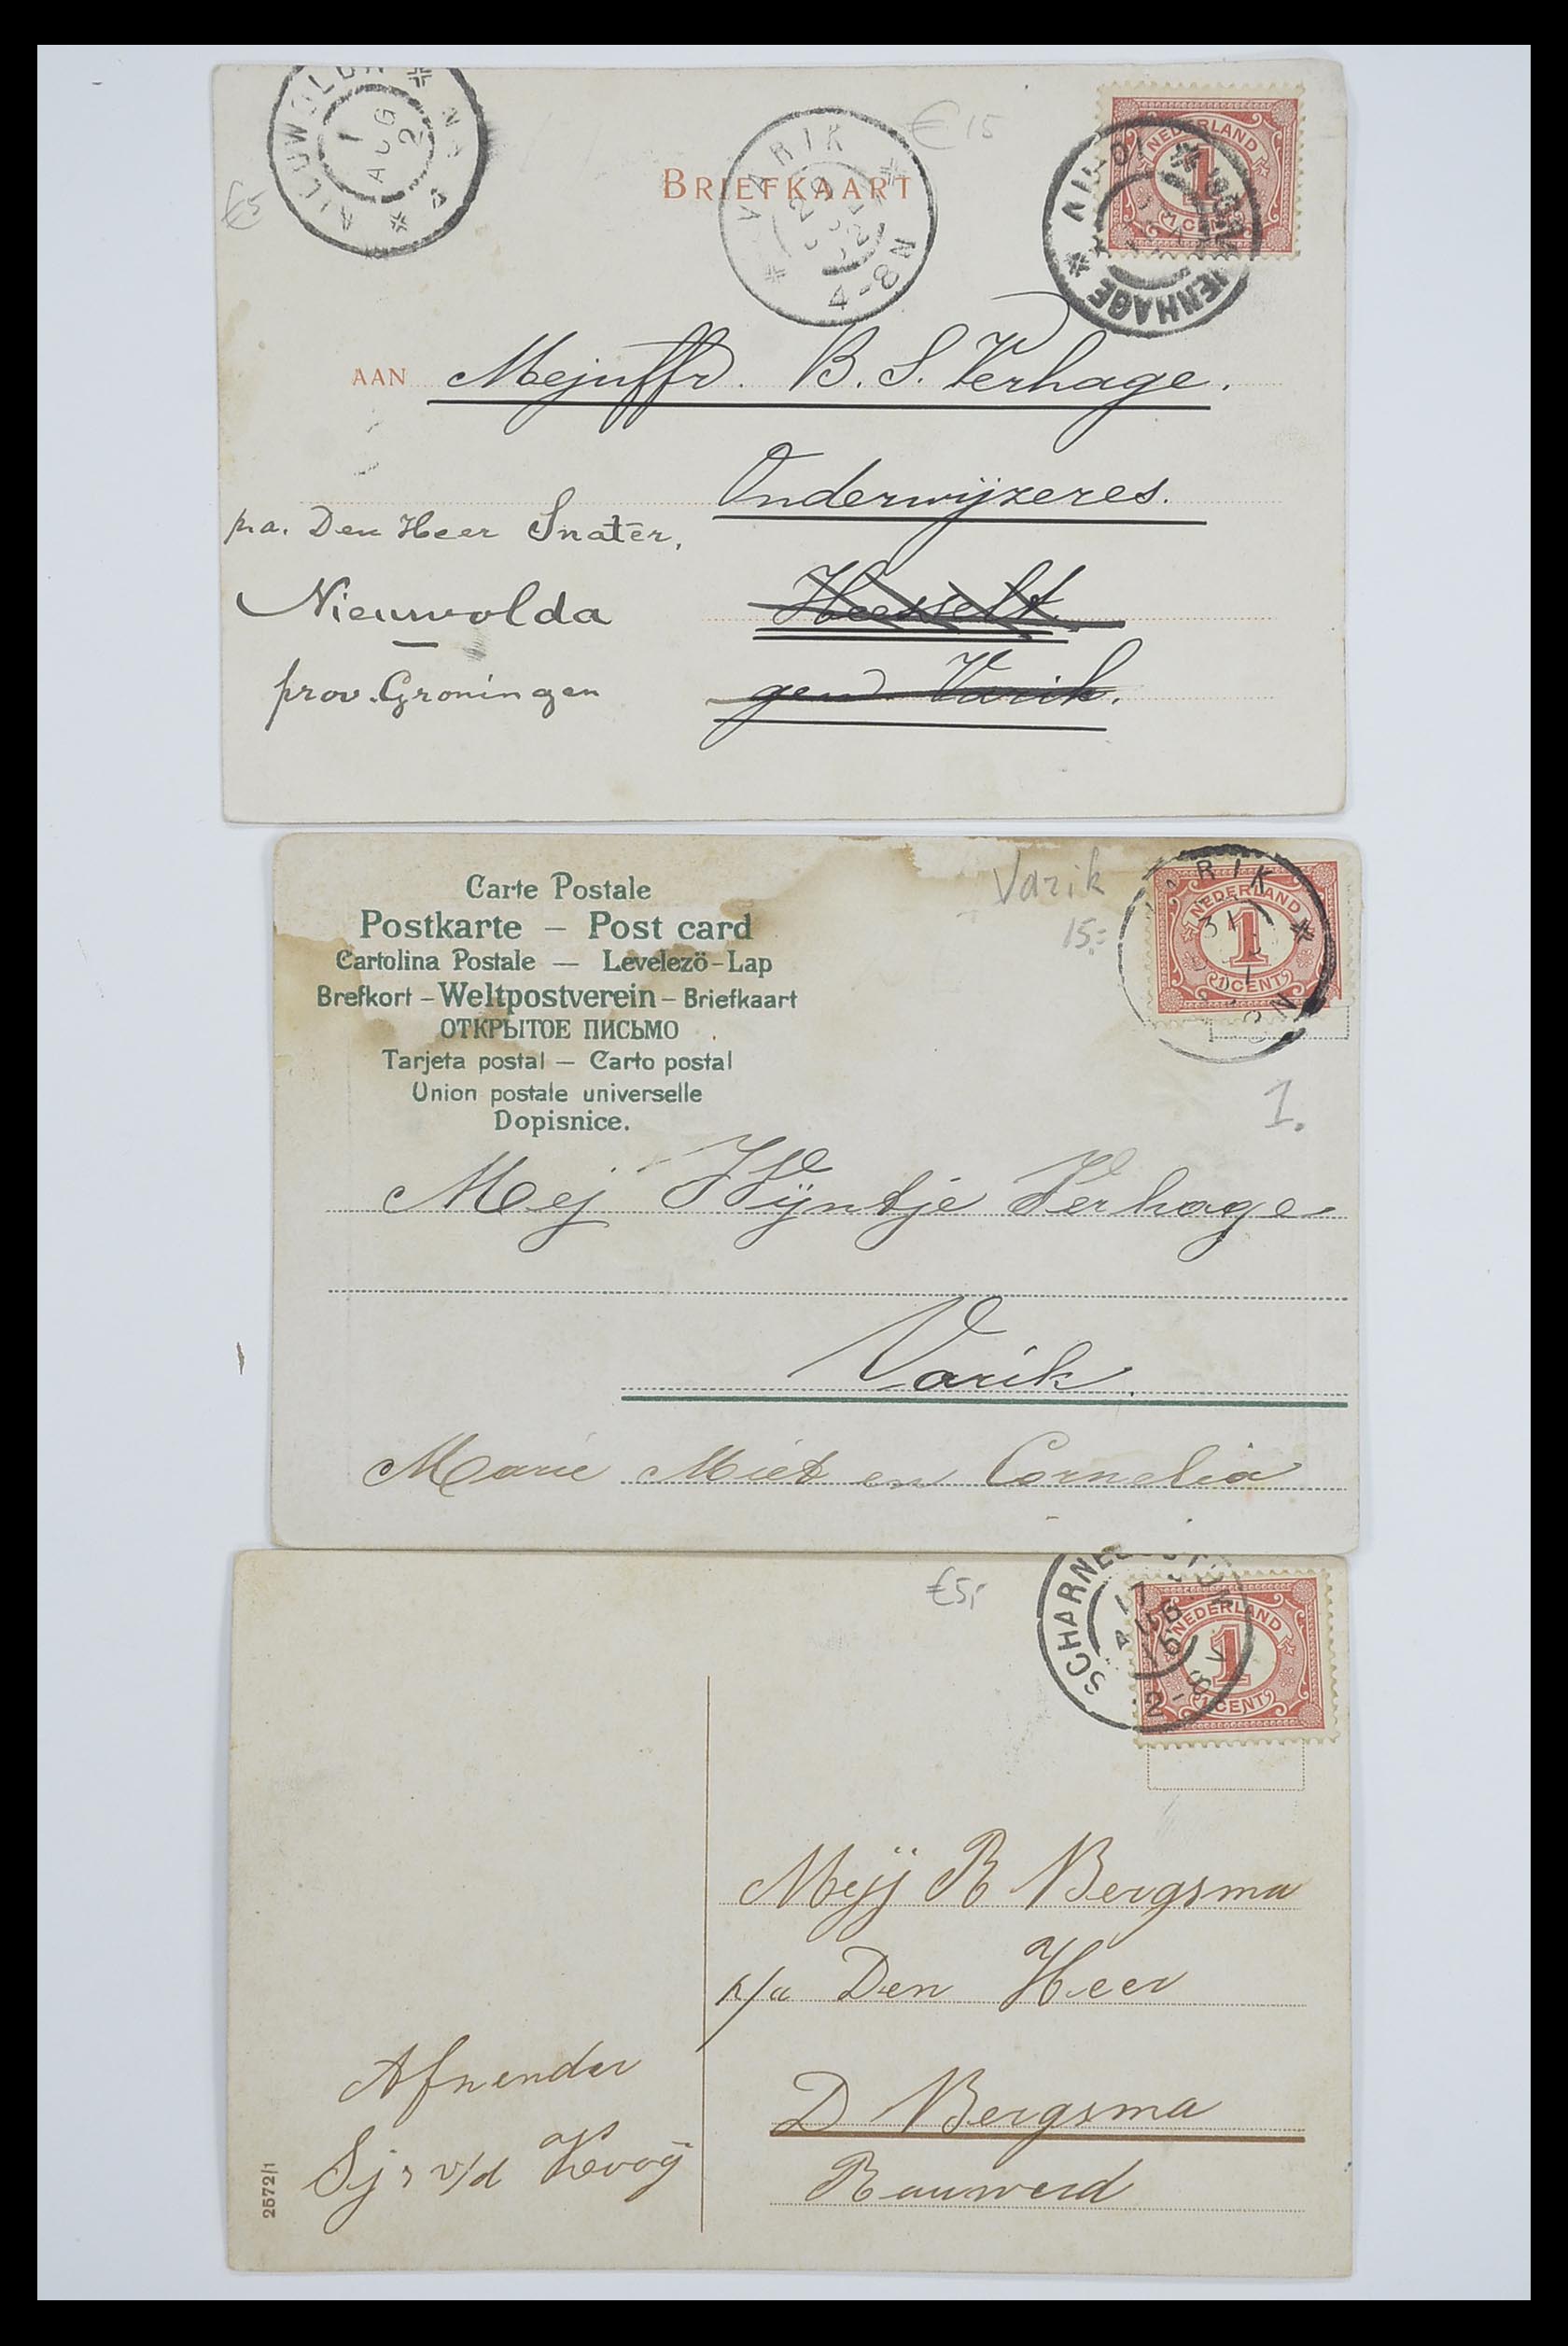 € 15
€5
VARIK
4-8N
BRIEFKAART
NEDERLAND
1
CENT
1
AUG
AAN Mejuffr. B. S. Verhage.
Onderwijzeres.
p.a. Den Heer Snater,
Nieuwolda
prov. Groningen
Hesselt.
gem Varik.
Carte Postale
Postkarte — Post card
Cartolina Postale — Levelező-Lap
Brefkort – Weltpostverein – Briefkaart
ОТКРЫТОЕ ПИСЬМО
Tarjeta postal — Carto postal
Union postale universelle
Dopisnice.
Varik
15.=
NEDERLAND
1
1 CENT
31
1.
Mej Wijntje Verhage
Varik.
Marie Miet en Cornelia
€5,-
NEDERLAND
1
1 CENT
17
AUG
15
2-8V
Mejj R Bergsma
p/a Den Heer
D Bergsma
Rauwerd
Afzender
2572/1